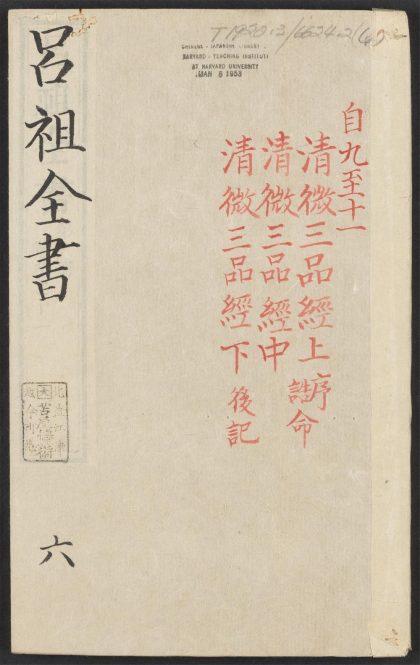 T1930.2/6634.2(6)
CHINESE - JAPANESE LIBRARY
HARVARD - YENCHING INSTITUTE
AT HARVARD UNIVERSITY
JAN 8 1953
自九至十一
清微三品經上序誥命
清微三品經中
清微三品經下後記
呂祖全書
六